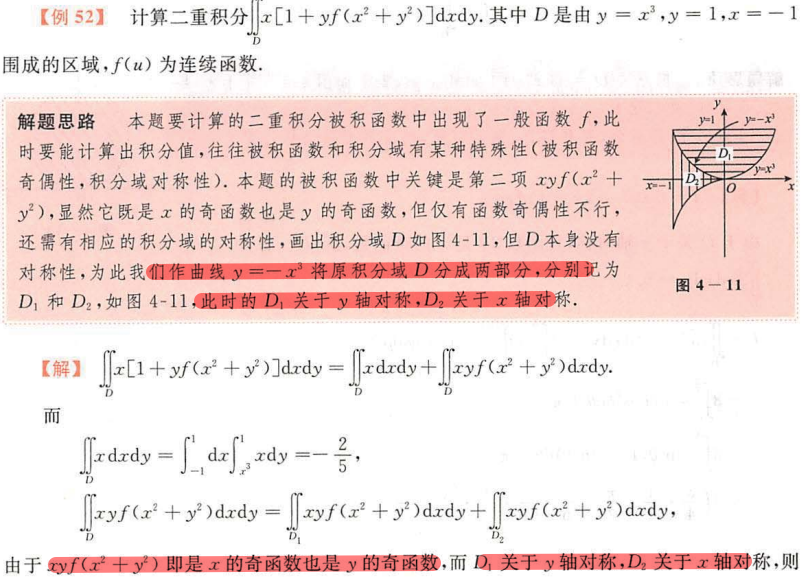 【例 52】 计算二重积分∬_D x[1 + yf(x² + y²)]dxdy. 其中 D 是由 y = x³, y = 1, x = −1
围成的区域, f(u) 为连续函数.
解题思路 本题要计算的二重积分被积函数中出现了一般函数 f, 此
时要能计算出积分值, 往往被积函数和积分域有某种特殊性(被积函数
奇偶性, 积分域对称性). 本题的被积函数中关键是第二项 xyf(x² +
y²), 显然它既是 x 的奇函数也是 y 的奇函数, 但仅有函数奇偶性不行,
还需有相应的积分域的对称性, 画出积分域 D 如图 4-11, 但 D 本身没有
对称性, 为此我们作曲线 y = − x³ 将原积分域 D 分成两部分, 分别记为
D₁ 和 D₂, 如图 4-11, 此时的 D₁ 关于 y 轴对称, D₂ 关于 x 轴对称.
y
y=1 y=−x³
D₁
y=x³
x=−1 D₂ O x
图 4 − 11
【解】 ∬_D x[1 + yf(x² + y²)]dxdy = ∬_D xdxdy + ∬_D xyf(x² + y²)dxdy.
而
∬_D xdxdy = ∫_{−1}^{1} dx ∫_{x³}^{1} xdy = − 2/5,
∬_D xyf(x² + y²)dxdy = ∬_{D₁} xyf(x² + y²)dxdy + ∬_{D₂} xyf(x² + y²)dxdy,
由于 xyf(x² + y²) 即是 x 的奇函数也是 y 的奇函数, 而 D₁ 关于 y 轴对称, D₂ 关于 x 轴对称, 则